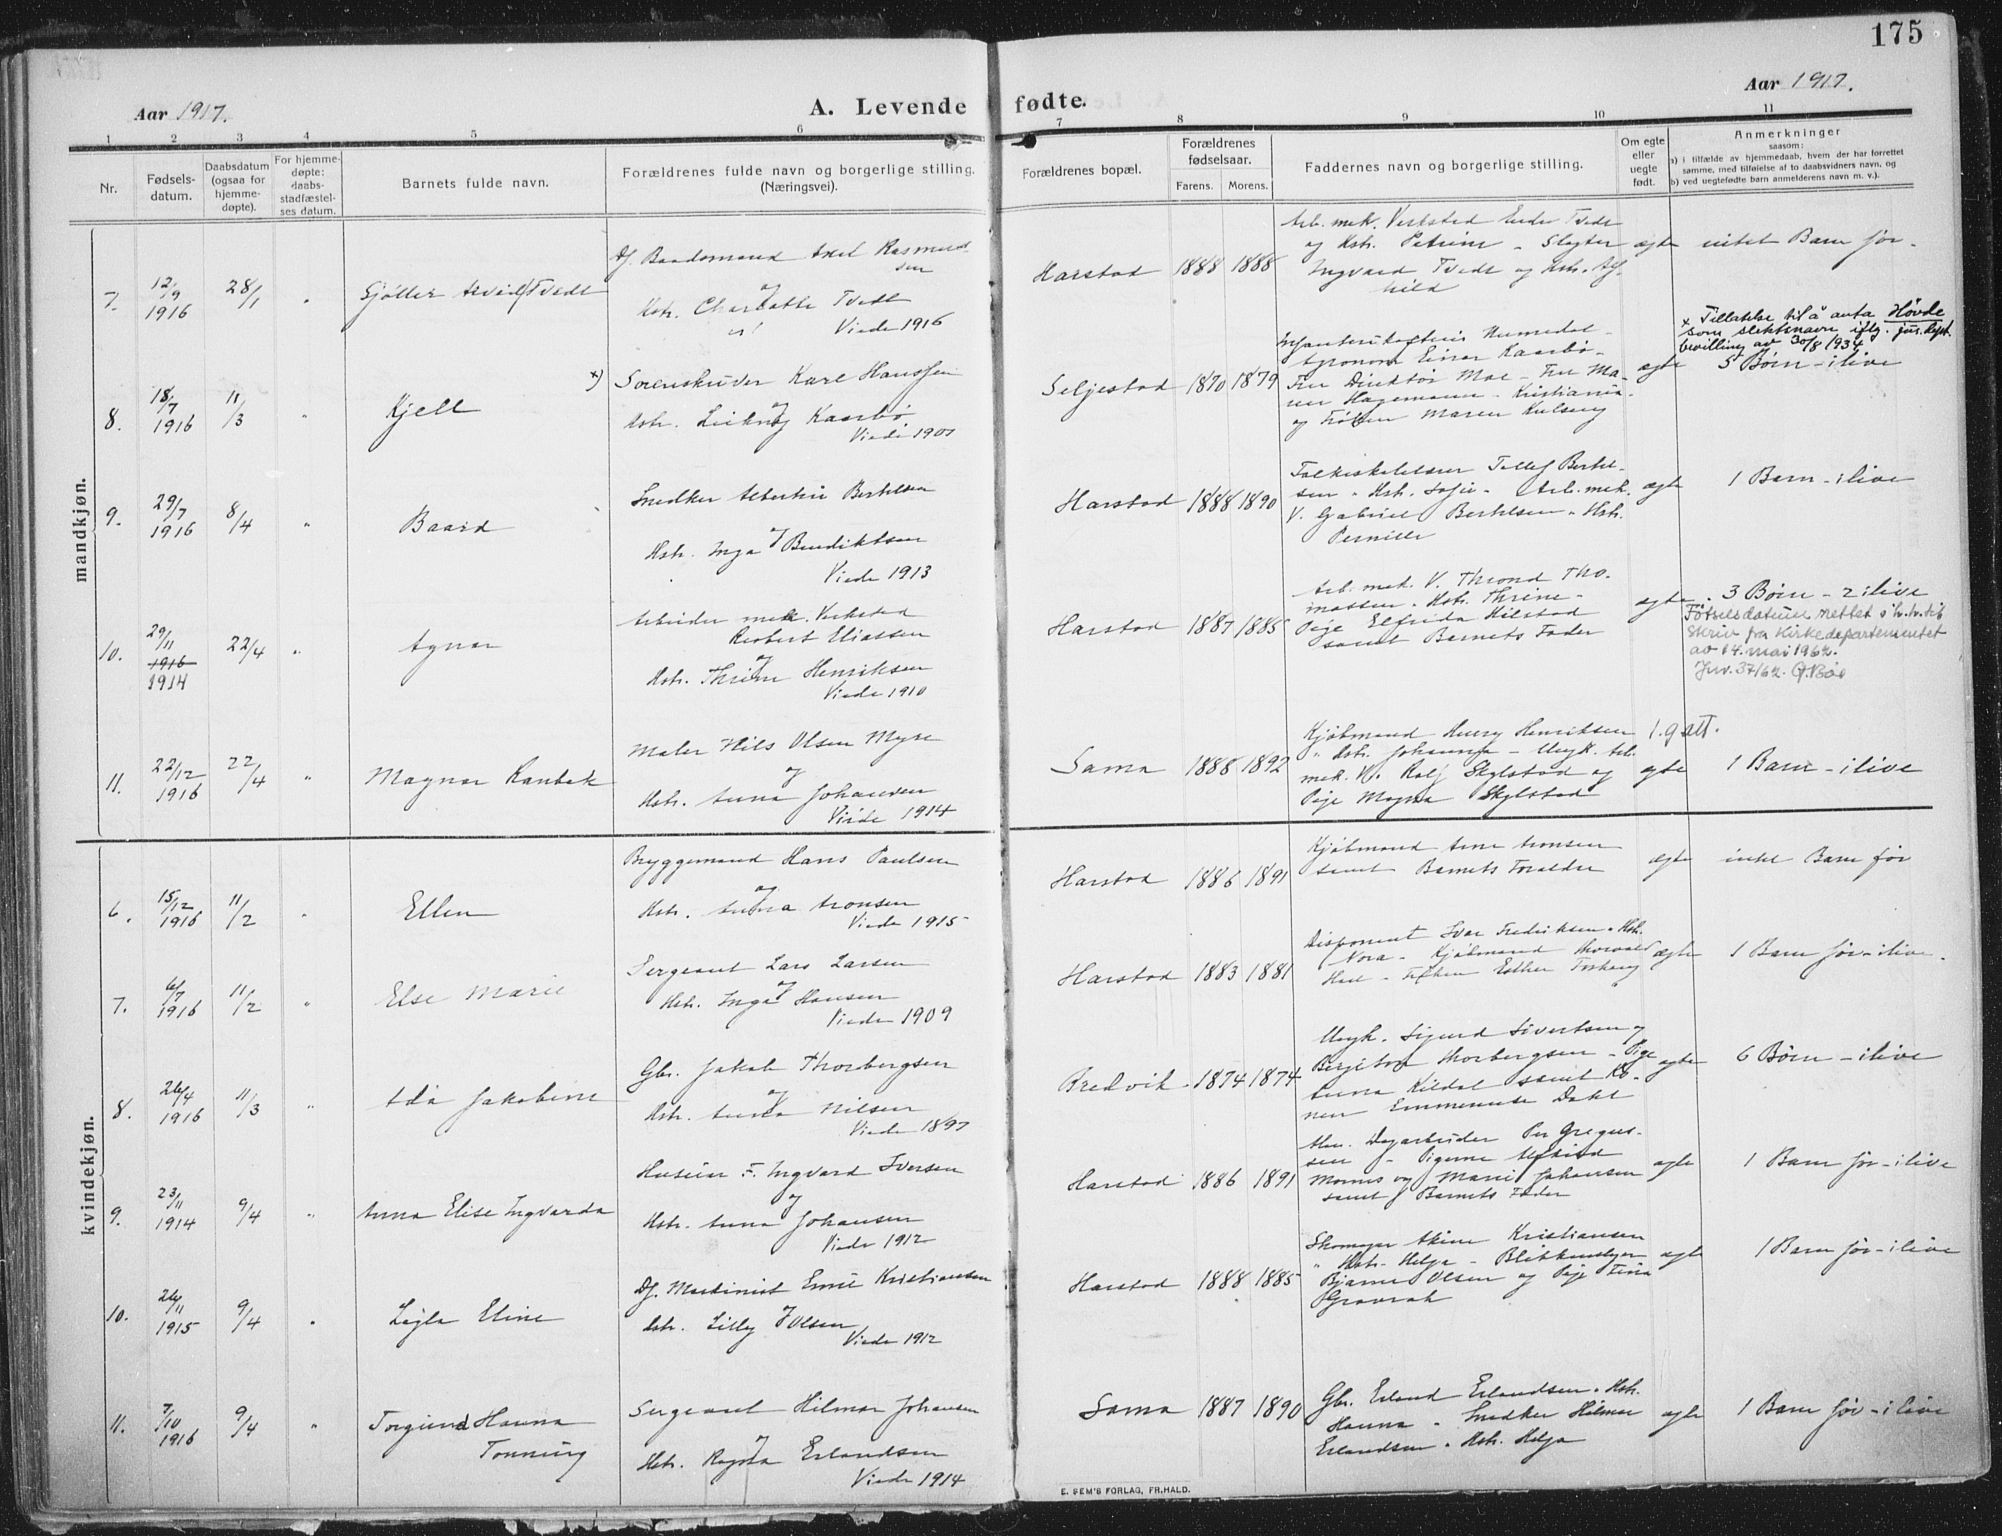 175
Aar 1917.
A. Levende fødte.
Aar 1917.
1 2 3 4 5 6 7 8 9 10 11
Nr.
Fødsels-
datum.
Daabsdatum
(ogsaa for
hjemme-
døpte).
For hjemme-
døpte:
daabs-
stadfæstel-
ses datum.
Barnets fulde navn.
Forældrenes fulde navn og borgerlige stilling.
(Næringsvei).
Forældrenes bopæl.
Forældrenes
fødselsaar.
Farens. Morens.
Faddernes navn og borgerlige stilling.
Om egte
eller
uegte
født.
Anmerkninger
saasom:
a) i tilfælde av hjemmedaab, hvem der har forrettet
samme, med tilføielse af to daabsvidners navn, og
b) ved uegtefødte barn anmelderens navn m. v.).
mandkjøn.
7.
12/9
1916
28/1
"
Gjøller Arvid Tvedt
Baadsmand Axel Rasmus-
sen
og
Hstr. Charlotte Tvedt
Viede 1916
Harstad 1888 1888
Arb. mek. Verksted Tvedt
og Hstr. Petrine - Slagter
Ingvard Tvedt og Hstr. Alf-
hild
ægte
intet Barn før.
8.
18/7
1916
11/3
"
Kjell
x) Sorenskriver Karl Hanssen
og
Hstr. Leikny Kaarbø
Viede 1907
Seljestad 1870 1879
Agronom Einar Kaarbø -
Fru Direktør Moe - Fru Ma-
Hagemann - Kristiania -
og Frøken Maren
ægte
x Tillatelse til å anta Høvde
som slektsnavn iflg. jus. dept.
bevilling av 30/8 1934
5 Børn - i live
9.
29/7
1916
8/4
"
Baard
Snedker Albertin Bertelsen
og
Hstr. Inga Bendiktsen
Viede 1913
Harstad 1888 1890
Folkeskolelærer Tollef Bertel-
sen - Hstr. Sofie - Arb. mek.
V. Gabriel Bertelsen - Hstr.
Pernille
ægte
1 Barn - i live
10.
29/11
1916
1914
22/4
"
Agnar
Arbeider mek. Verksted
Robert Eliassen
og
Hstr. Thrine Henriksen
Viede 1910
Harstad 1887 1885
Arb. mek. V. Thrond Tho-
massen - Hstr. Thrine -
Pige Elfrida Kilstad
samt Barnets Fader
ægte
3 Børn - 2 i live
Fødselsdatum rettet i h.t. til
skriv fra Kirkedepartementet
av 14. mai 1962.
Jnr. 37/62. O. Bøe
11.
22/12
1916
22/4
"
Magnar Ranbek
Maler Nils Olsen Myre
og
Hstr. Anna Johansen
Viede 1914
Sama 1888 1892
Kjøbmand Henry Henriksen
" Hstr. Johanna - Ungk. Arb.
mek. V. Ralf Skjlstad og
Pige Magna Skjlstad
1. g att.
ægte
1 Barn - i live
kvindekjøn.
6.
15/12
1916
11/2
"
Ellen
Bryggemand Hans Paulsen
og
Hstr. Anna Aronsen
Viede 1915
Harstad 1886 1891
Kjøbmand Arne Aronsen
samt Barnets Forældre
ægte
intet Barn før
7.
6/7
1916
11/2
"
Else Marie
Sergeant Lars Larsen
og
Hstr. Inga Hansen
Viede 1909
Harstad 1883 1881
Disponent Ivar Fredriksen - Hstr.
Nora - Kjøbmand Thorvald
- Frøken Esther Forberg
ægte
1 Barn før - i live.
8.
26/4
1916
11/3
"
Ada Jakobine
Gbr. Jakob Thorbergsen
og
Hstr. Anna Nilsen
Viede 1897
Bredvik 1874 1874
Ungk. Sigurd Sivertsen og
Bergitha Thorbergsen - Pige
Anna Kildal samt Ko-
nen Emmemute Dahl
ægte
6 Børn - i live
9.
23/11
1914
9/4
"
Anna Elise Ingvarda
Huseier F. Ingvard Iversen
og
Hstr. Anna Johansen
Viede 1912
Harstad 1886 1891
Dagarbeider Per Gregus-
sen - Pigerne Alfhild
og Marie Johansen
samt Barnets Fader
ægte
1 Barn før - i live
10.
26/11
1915
9/4
"
Leyla Eline
Maskinist Emil Kristiansen
og
Hstr. Lilly Olsen
Viede 1912
Harstad 1888 1885
Skomager Kristiansen
" Hstr. Helga - Blikkenslager
Bjarne Olsen og Pige Tina
Gravrok
ægte
1 Barn før - i live
11.
7/10
1916
9/4
"
Torgund Hanna
Tonning
Sergeant Hilmar Johansen
og
Hstr. Ragna Erlandsen
Viede 1914
Sama 1887 1890
Gbr. Erland Erlandsen - Hstr.
Hanna - Snedker Hilmar
Erlandsen - Hstr. Helga
ægte
1 Barn før - i live
E. SEM'S FORLAG, FR.HALD.